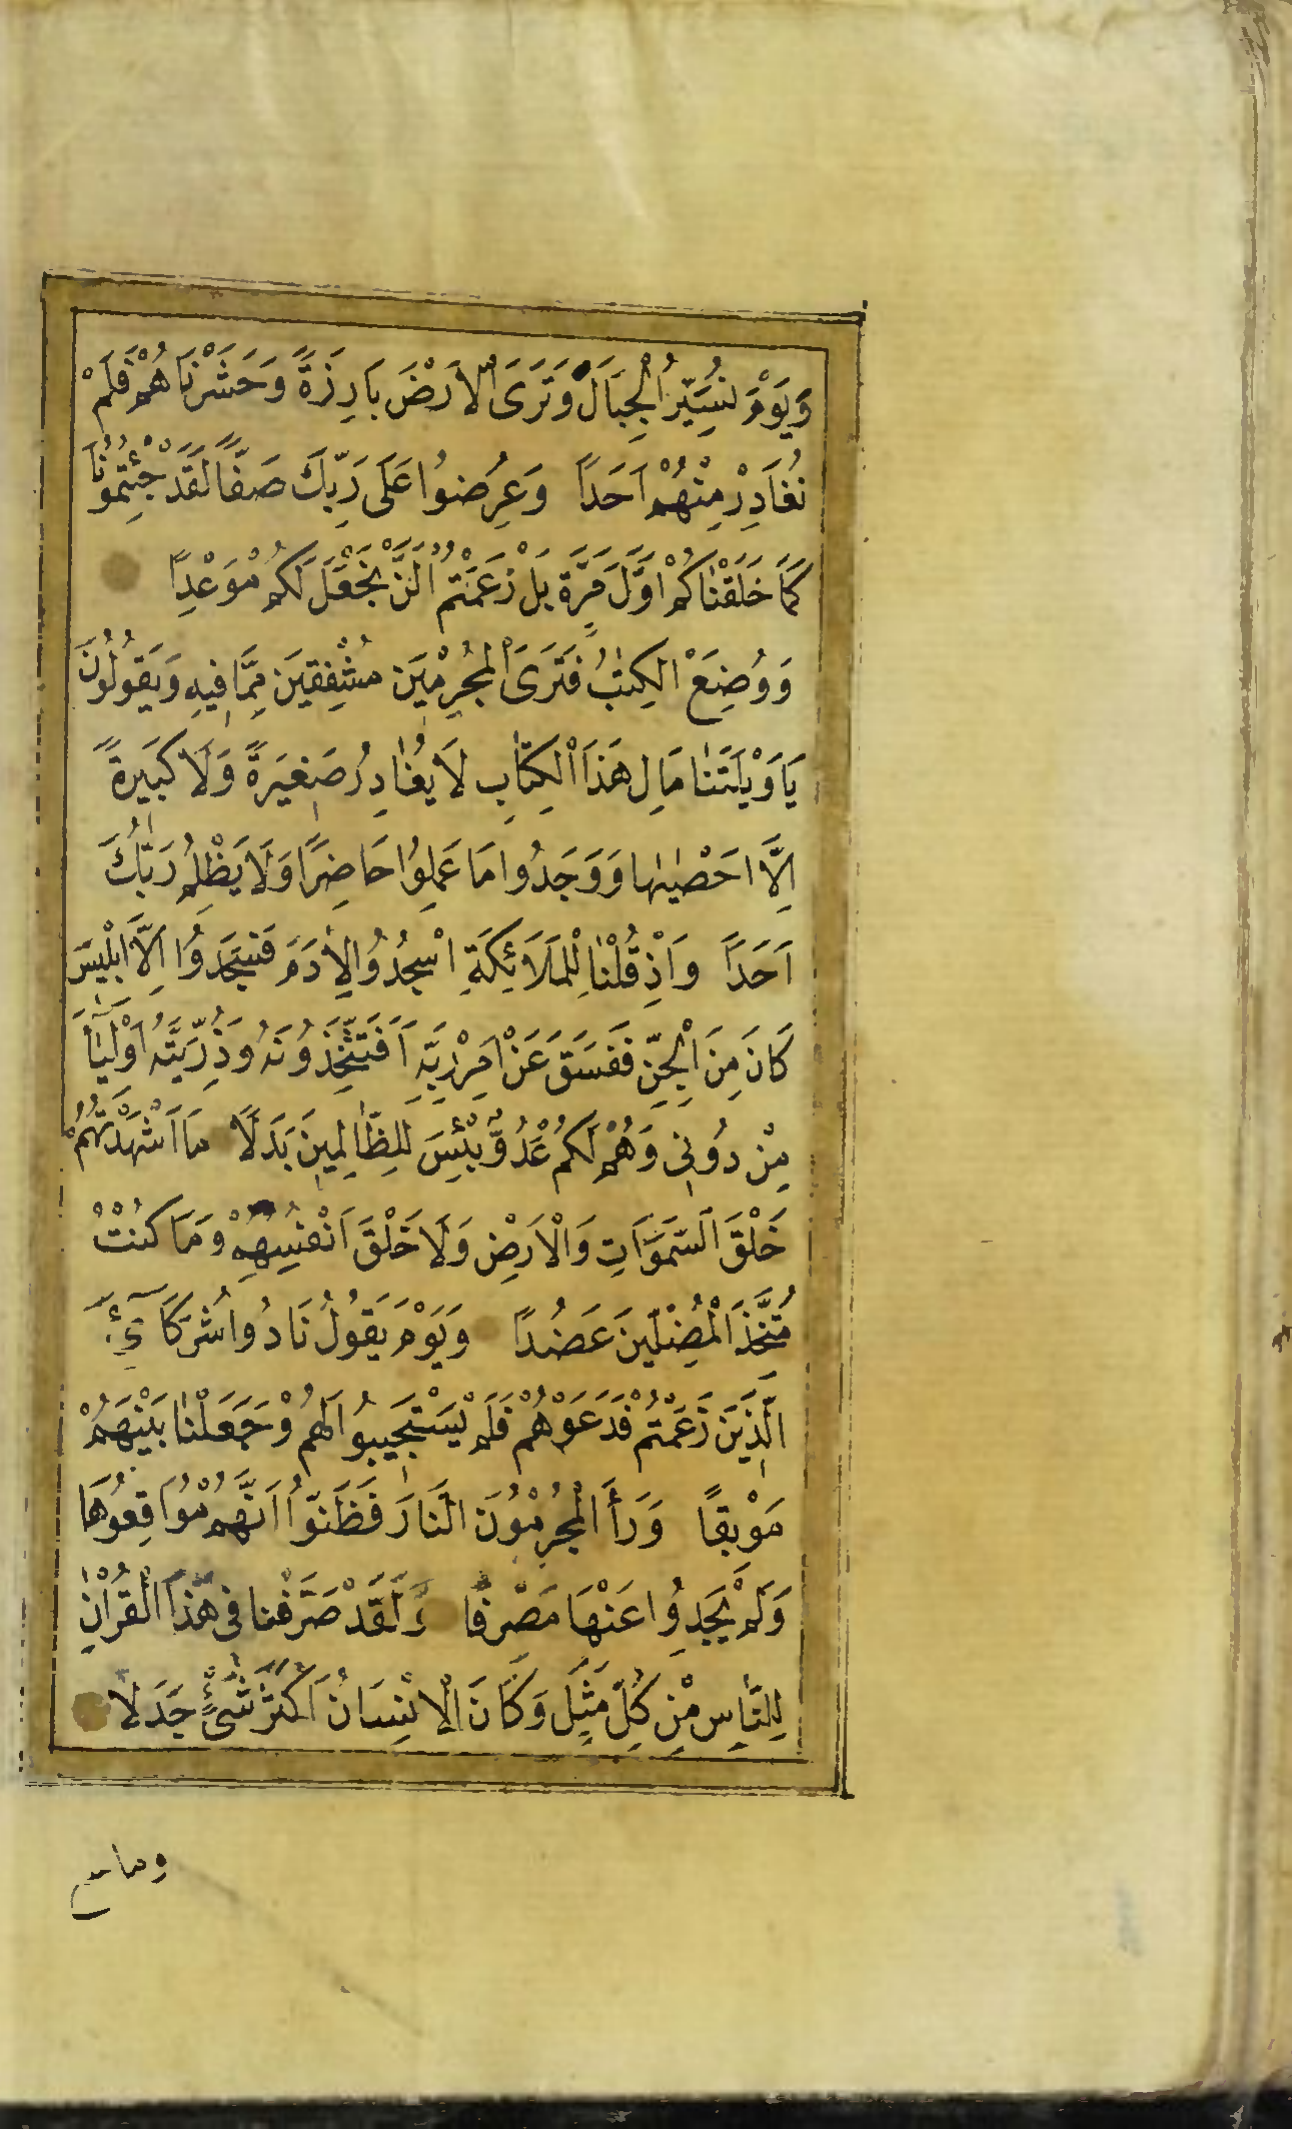 وَيَوْمَ نُسَيِّرُ الْجِبَالَ وَتَرَى الْاَرْضَ بَارِزَةً وَحَشَرْنَاهُمْ فَلَمْ
نُغَادِرْ مِنْهُمْ اَحَدًا وَعُرِضُوا عَلَى رَبِّكَ صَفًّا لَقَدْ جِئْتُمُونَا
كَمَا خَلَقْنَاكُمْ اَوَّلَ مَرَّةٍ بَلْ زَعَمْتُمْ اَلَّنْ نَجْعَلَ لَكُمْ مَوْعِدًا
وَوُضِعَ الْكِتٰبُ فَتَرَى الْمُجْرِمٖينَ مُشْفِقٖينَ مِمَّا فٖيهِ وَيَقُولُونَ
يَا وَيْلَتَنَا مَالِ هَذَا الْكِتَابِ لَا يُغَادِرُ صَغٖيرَةً وَلَا كَبٖيرَةً
اِلَّا اَحْصٰيهَا وَوَجَدُوا مَا عَمِلُوا حَاضِرًا وَلَا يَظْلِمُ رَبُّكَ
اَحَدًا وَاِذْ قُلْنَا لِلْمَلَائِكَةِ اسْجُدُوا لِاٰدَمَ فَسَجَدُوا اِلَّا اِبْلٖيسَ
كَانَ مِنَ الْجِنِّ فَفَسَقَ عَنْ اَمْرِ رَبِّهٖ اَفَتَتَّخِذُونَهُ وَذُرِّيَّتَهُ اَوْلِيَاءَ
مِنْ دُونٖى وَهُمْ لَكُمْ عَدُوٌّ بِئْسَ لِلظَّالِمٖينَ بَدَلًا مَا اَشْهَدْتُهُمْ
خَلْقَ السَّمَوَاتِ وَالْاَرْضِ وَلَا خَلْقَ اَنْفُسِهِمْ وَمَا كُنْتُ
مُتَّخِذَ الْمُضِلّٖينَ عَضُدًا وَيَوْمَ يَقُولُ نَادُوا شُرَكَائِيَ
الَّذٖينَ زَعَمْتُمْ فَدَعَوْهُمْ فَلَمْ يَسْتَجٖيبُوا لَهُمْ وَجَعَلْنَا بَيْنَهُمْ
مَوْبِقًا وَرَأَ الْمُجْرِمُونَ النَّارَ فَظَنُّوا اَنَّهُمْ مُوَاقِعُوهَا
وَلَمْ يَجِدُوا عَنْهَا مَصْرِفًا وَلَقَدْ صَرَّفْنَا فٖى هٰذَا الْقُرْاٰنِ
لِلنَّاسِ مِنْ كُلِّ مَثَلٍ وَكَانَ الْاِنْسَانُ اَكْثَرَ شَىْءٍ جَدَلًا